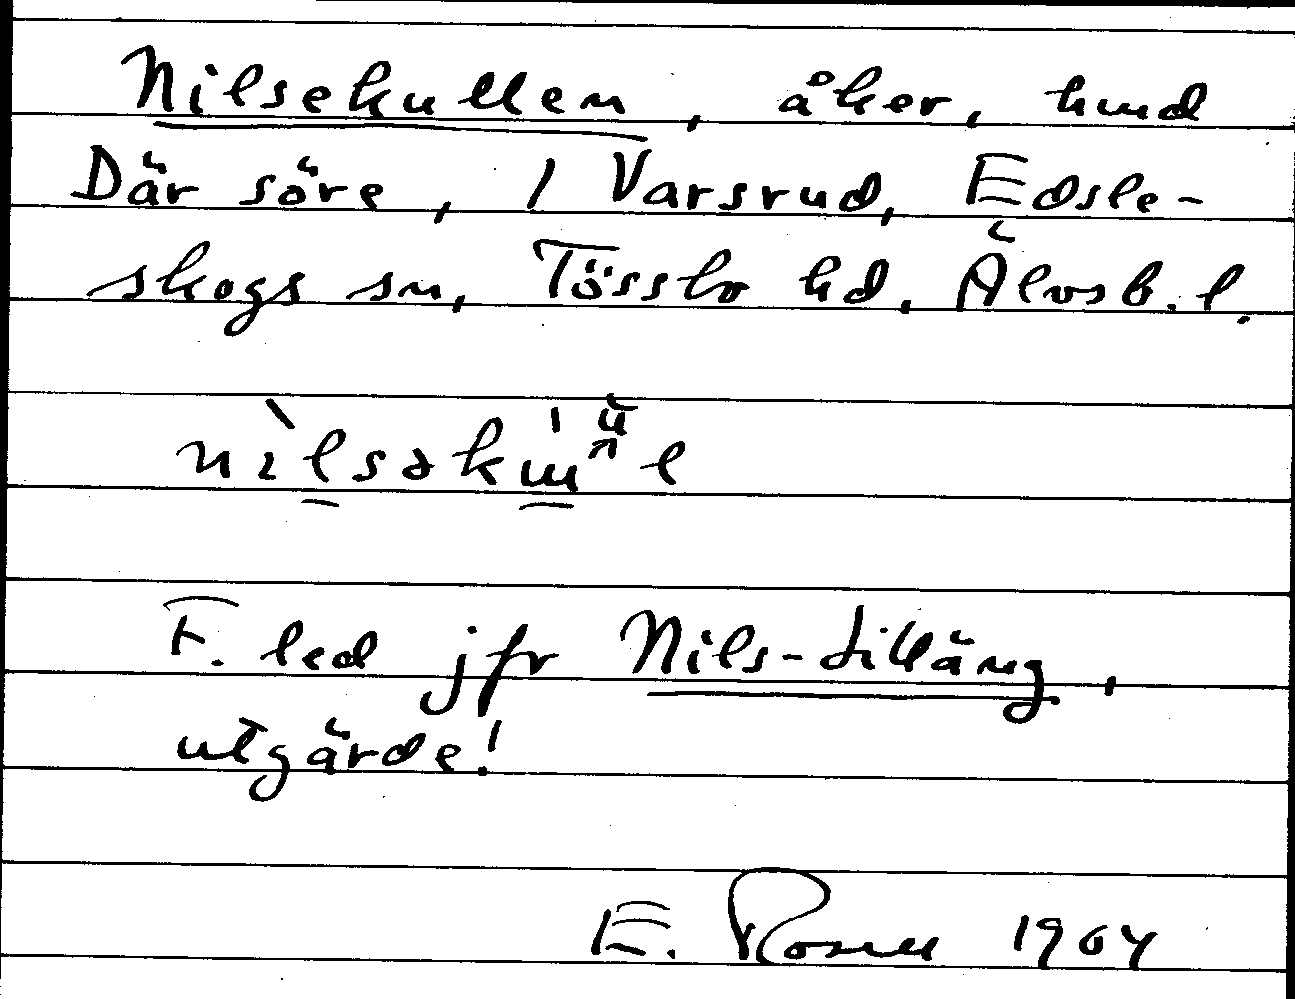 Nilsekullen, åker, hund
Där söre, 1 Varsrud, Edsle-
skogs sn, Tössbo hd. Älvsb. l.
F. led jfr Nils-Lilläng,
utgärde!
E. 1904